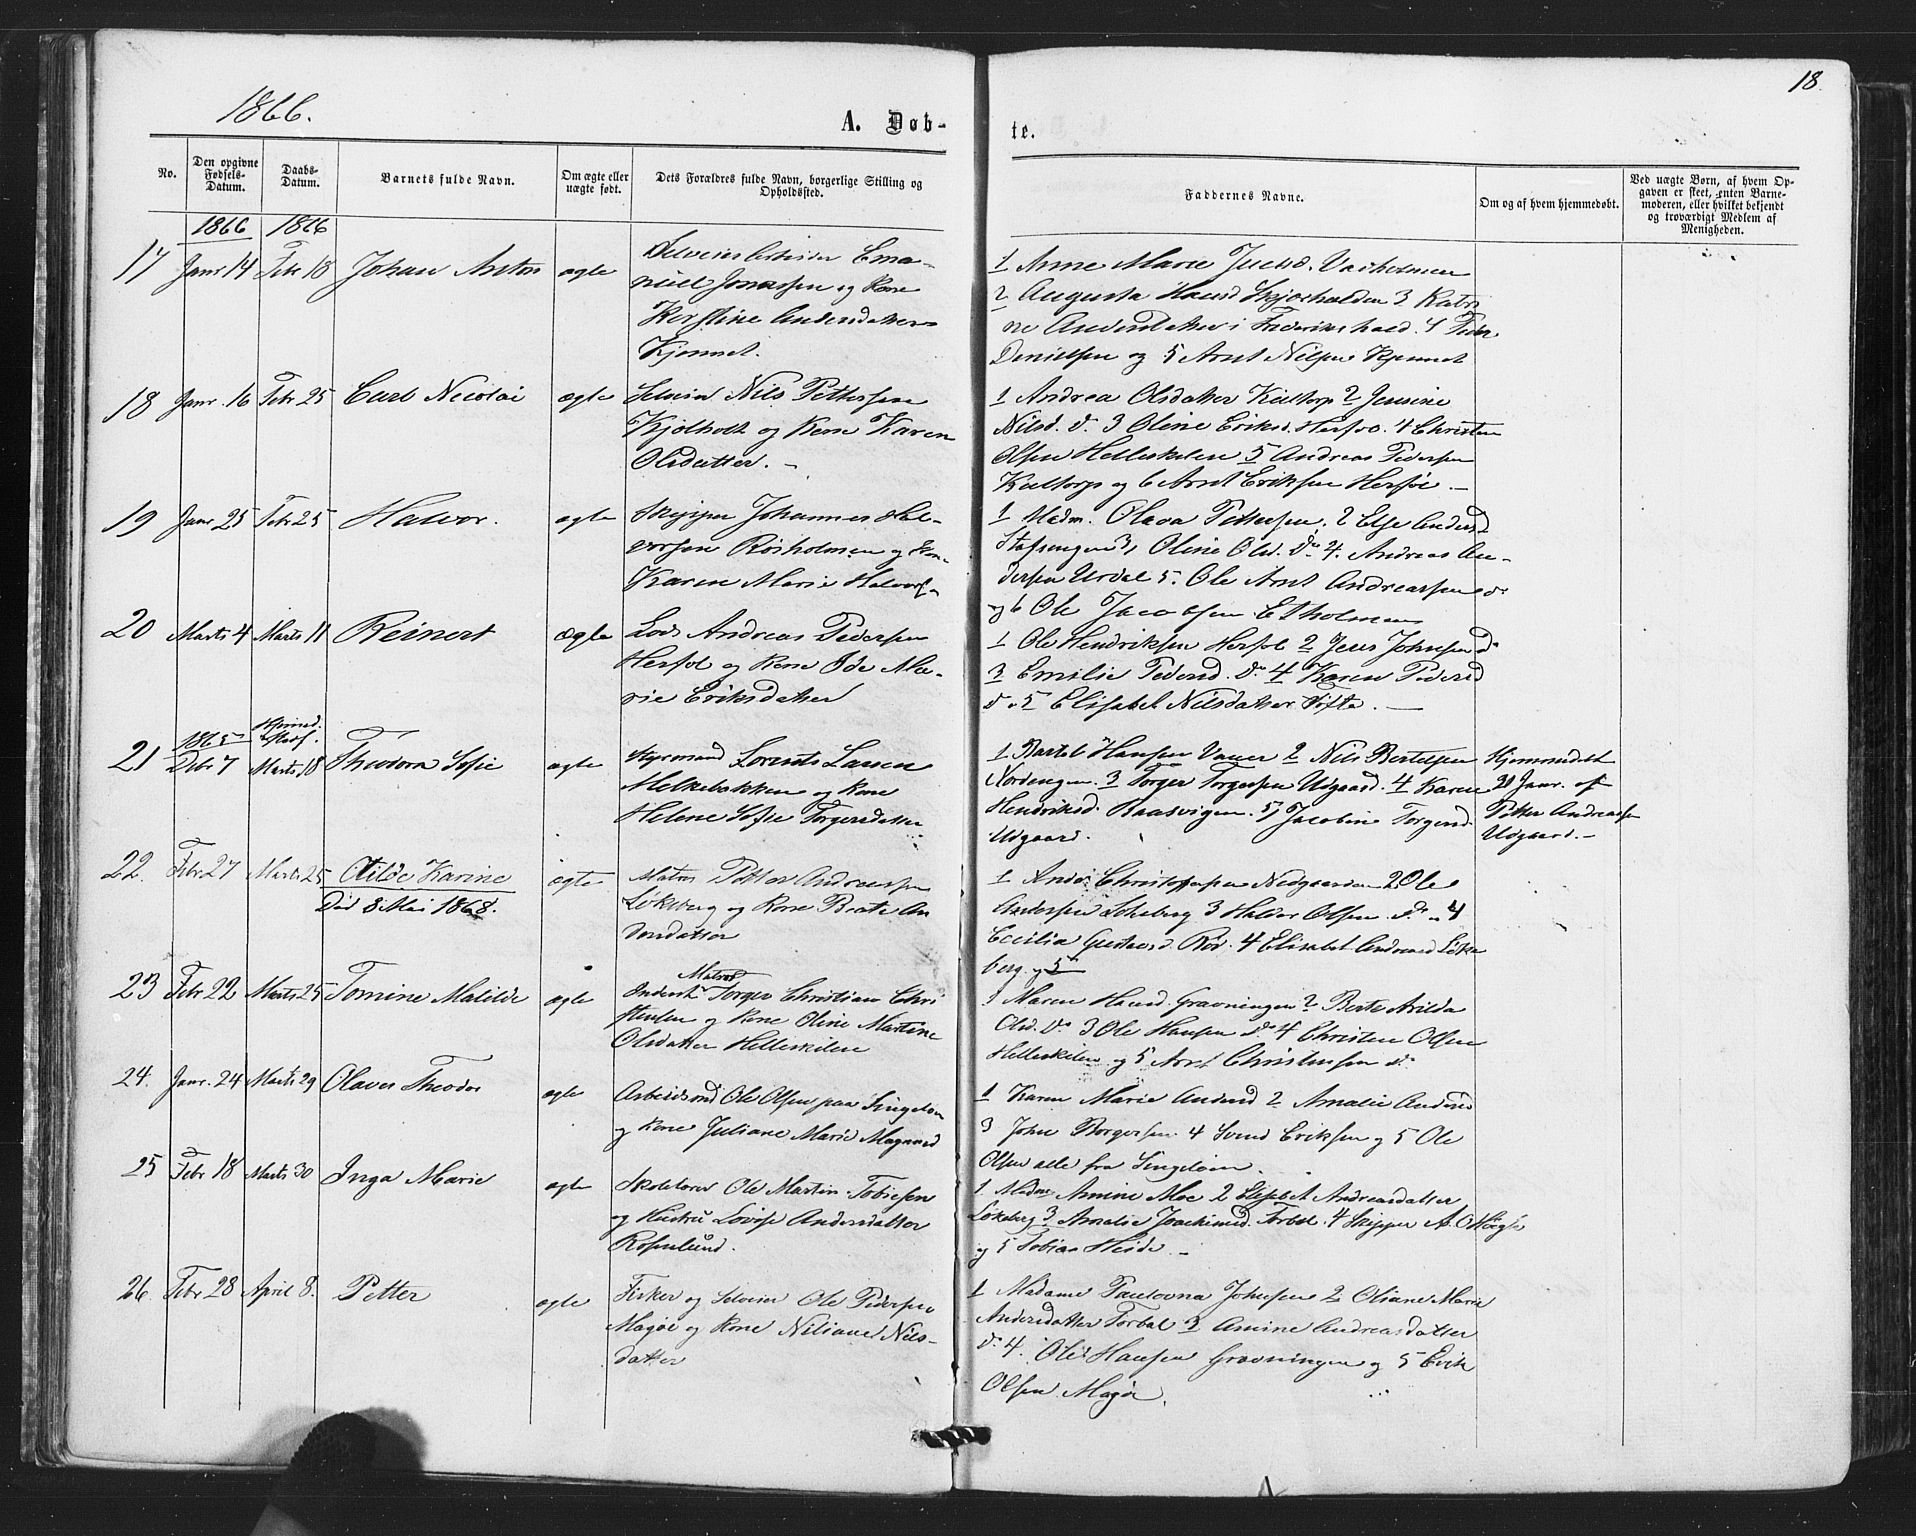 1866.
18.
A. Døb-
te.
No.
Den opgivne Fødsels-Datum.
Daabs-Datum.
Barnets fulde Navn.
Om ægte eller uægte født.
Dets Forældres fulde Navn, borgerlige Stilling og Opholdssted.
Faddernes Navne.
Om og af hvem hjemmedøbt.
Ved uægte Børn, af hvem Opgaven er skeet, enten Barnemoderen, eller hvilket bekjendt og troværdigt Medlem af Menigheden.
1866 1866
17 Janr 14 Febr 18 Johan Anton ægte
Selveier Ema-
nuel Jonassen og Kone
Kirstine Andersdatter
Kjønnet.
1 Anne Marie
2 Augusta Hansd Skjærhalden 3 Katri
ne Andersdatter i Frederikshald. 4 Peder
Danielsen og 5 Arnt Nilsen Kjønnet
18 Janr. 16 Febr 25 Carl Nicolai ægte
Selveier Nils Pettersen
Kjølholt og Kone Karen
Olsdatter. -
1 Andrea Olsdatter Kiltorp 2 Jensine
Nilsd. do 3 Oline Eriksd. Herføl. 4 Christen
Olsen Helleskilen 5 Andreas Pedersen
Kiltorp og 6 Arnt Eriksen Herføl. -
19 Janr 25 Febr 25 Halvor. ægte
Skipper Johannes Hal-
vorsen Røsholmen og Kone
Karen Marie Halvors
1 Madm. Olava Pettersen. 2 Else Andersd
Stafsengen 3, Oline Olsd. do 4. Andreas An-
dersen Urdal 5. Ole Arnt Andreassen do
og 6 Ole Jacobsen Etholmen
20 Marts 4 Marts 11 Reinert ægte
Lods Andreas Pedersen
Herføl og Kone Ide Ma-
rie Eriksdatter
1 Ole Hendriksen Herføl 2 Jens Johnsen do
3 Emilie Pedersd. do 4 Karen Pedersd
do. 5 Elisabet Nilsdatter Tofte. -
21 1865 Debr 7 Marts 18 Theodora Sofie ægte
Styrmand Lorents Larsen
Melkebakken og Kone
Helene Sofie Torgersdatter
1 Bartel Hansen Vauer 2 Nils Bertelsen
Nordengen. 3 Torger Torgersen Udgaard. 4 Karen
Hendriksd. Baasvigen. 5 Jacobine Torgersd
Udgaard.
Hjemmedøbt
31 Janr. af
Petter Andreassen
Udgaard. -
22. Febr 27 Marts 25 Otilde Karine ægte
Død 8 Mai 1868.
Matros Petter Andreassen
Løkeberg og Kone Berte An
dersdatter
1 Anders Christoffersen Nedgaarden 2 Ole
Andersen Løkeberg 3 Haldor Olsen do 4
Cecilia Gustavsd Rød. 4 Elisabet Andersd Løke
berg. og 5
23 Febr 22 Marts 25 Tomine Matilde ægte
Matros
Inderst Torger Christian Chri
stensen og Kone Oline Martine
Olsdatter Helleskilen
1 Maren Hansd. Gravningen 2 Berte Arilda
Olsd. do 3 Ole Hansen do 4 Christen Olsen
Helleskilen og 5 Arnt Christensen do
24. Janr. 24 Marts 29 Olaves Theodor ægte
Arbeidsmd Ole Olsen paa Singeløen
og Kone Juliane Marie Magnusd
1 Karen Marie Andersd 2 Amalie Andersd
3 John Borgersen 4 Svend Eriksen og 5 Ole
Olsen alle fra Singeløen.
25 Febr 18 Marts 30 Inga Marie ægte
Skolelærer Ole Martin Tobiesen
og Hustru Lovise Andersdatter
Rosenlund.
1. Madme Amine Moe 2 Elisabet Andreasdatter
Løkeberg 3 Amalie Joachimsd. Torbal. 4 Skipper A.
og 5 Tobias Heide. -
26 Febr 28 April 8. Petter ægte
Fisker og Selveier Ole Pedersen
Magøe og Kone Niliane Nils-
datter
1 Madame Paulovna Johnsen 2 Oliane Marie
Andersdatter Torbal 3 Amine Andreasdatter
do 4. Ole Hansen Gravningen og 5 Erik
Olsen Magøe.